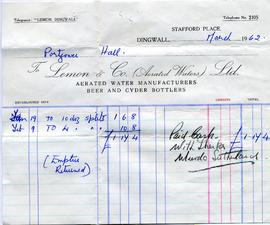 Telegrams: "LEMON, DINGWALL"
Telephone No. 2105
STAFFORD PLACE,
DINGWALL, March 1962
Portgower Hall.
To Lemon & Co. (Aerated Waters) Ltd.
AERATED WATER MANUFACTURERS
BEER AND CYDER BOTTLERS
Jan 19 To 10 doz splits 1 6 8
Feb 9 To 4 " " 10 8
1 17 4
(Empties Returned)
Paid Cash £1 17 4
With Thanks
Murdo Sutherland